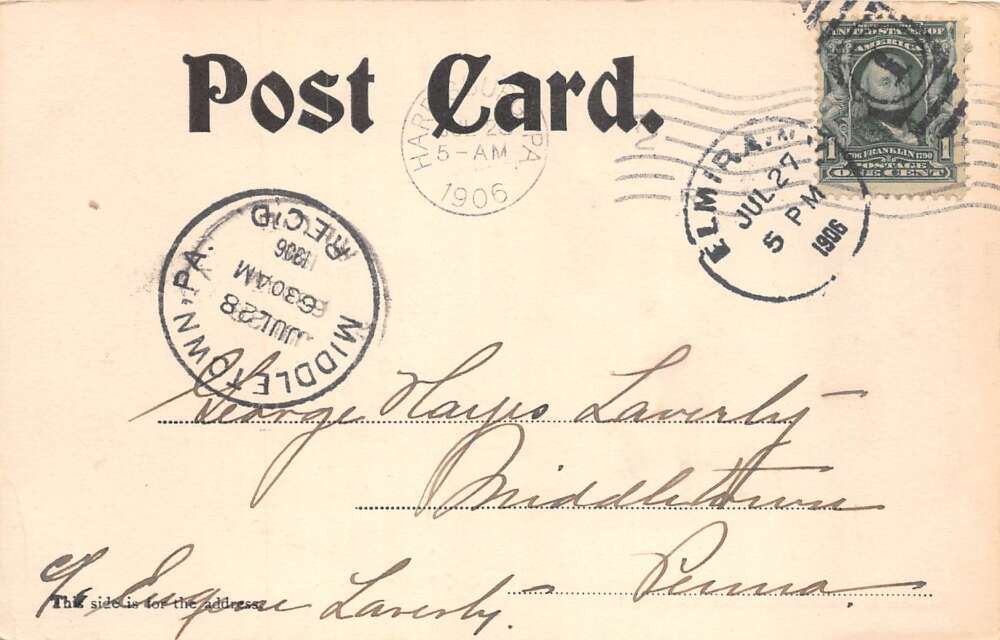 Post Card.
UNITED STATES OF
AMERICA
1 1706 FRANKLIN 1790 1
POSTAGE
ONE CENT
HARRISBURG PA
5-AM
1906
ELMIRA, N.Y.
JUL 27
5 PM
1906
1
MIDDLETOWN, PA.
JUL 28
630AM
1906
REC'D
George Hayes Laverty
Middletown
Penna.
c/o Eugene Laverty.
This side is for the address.